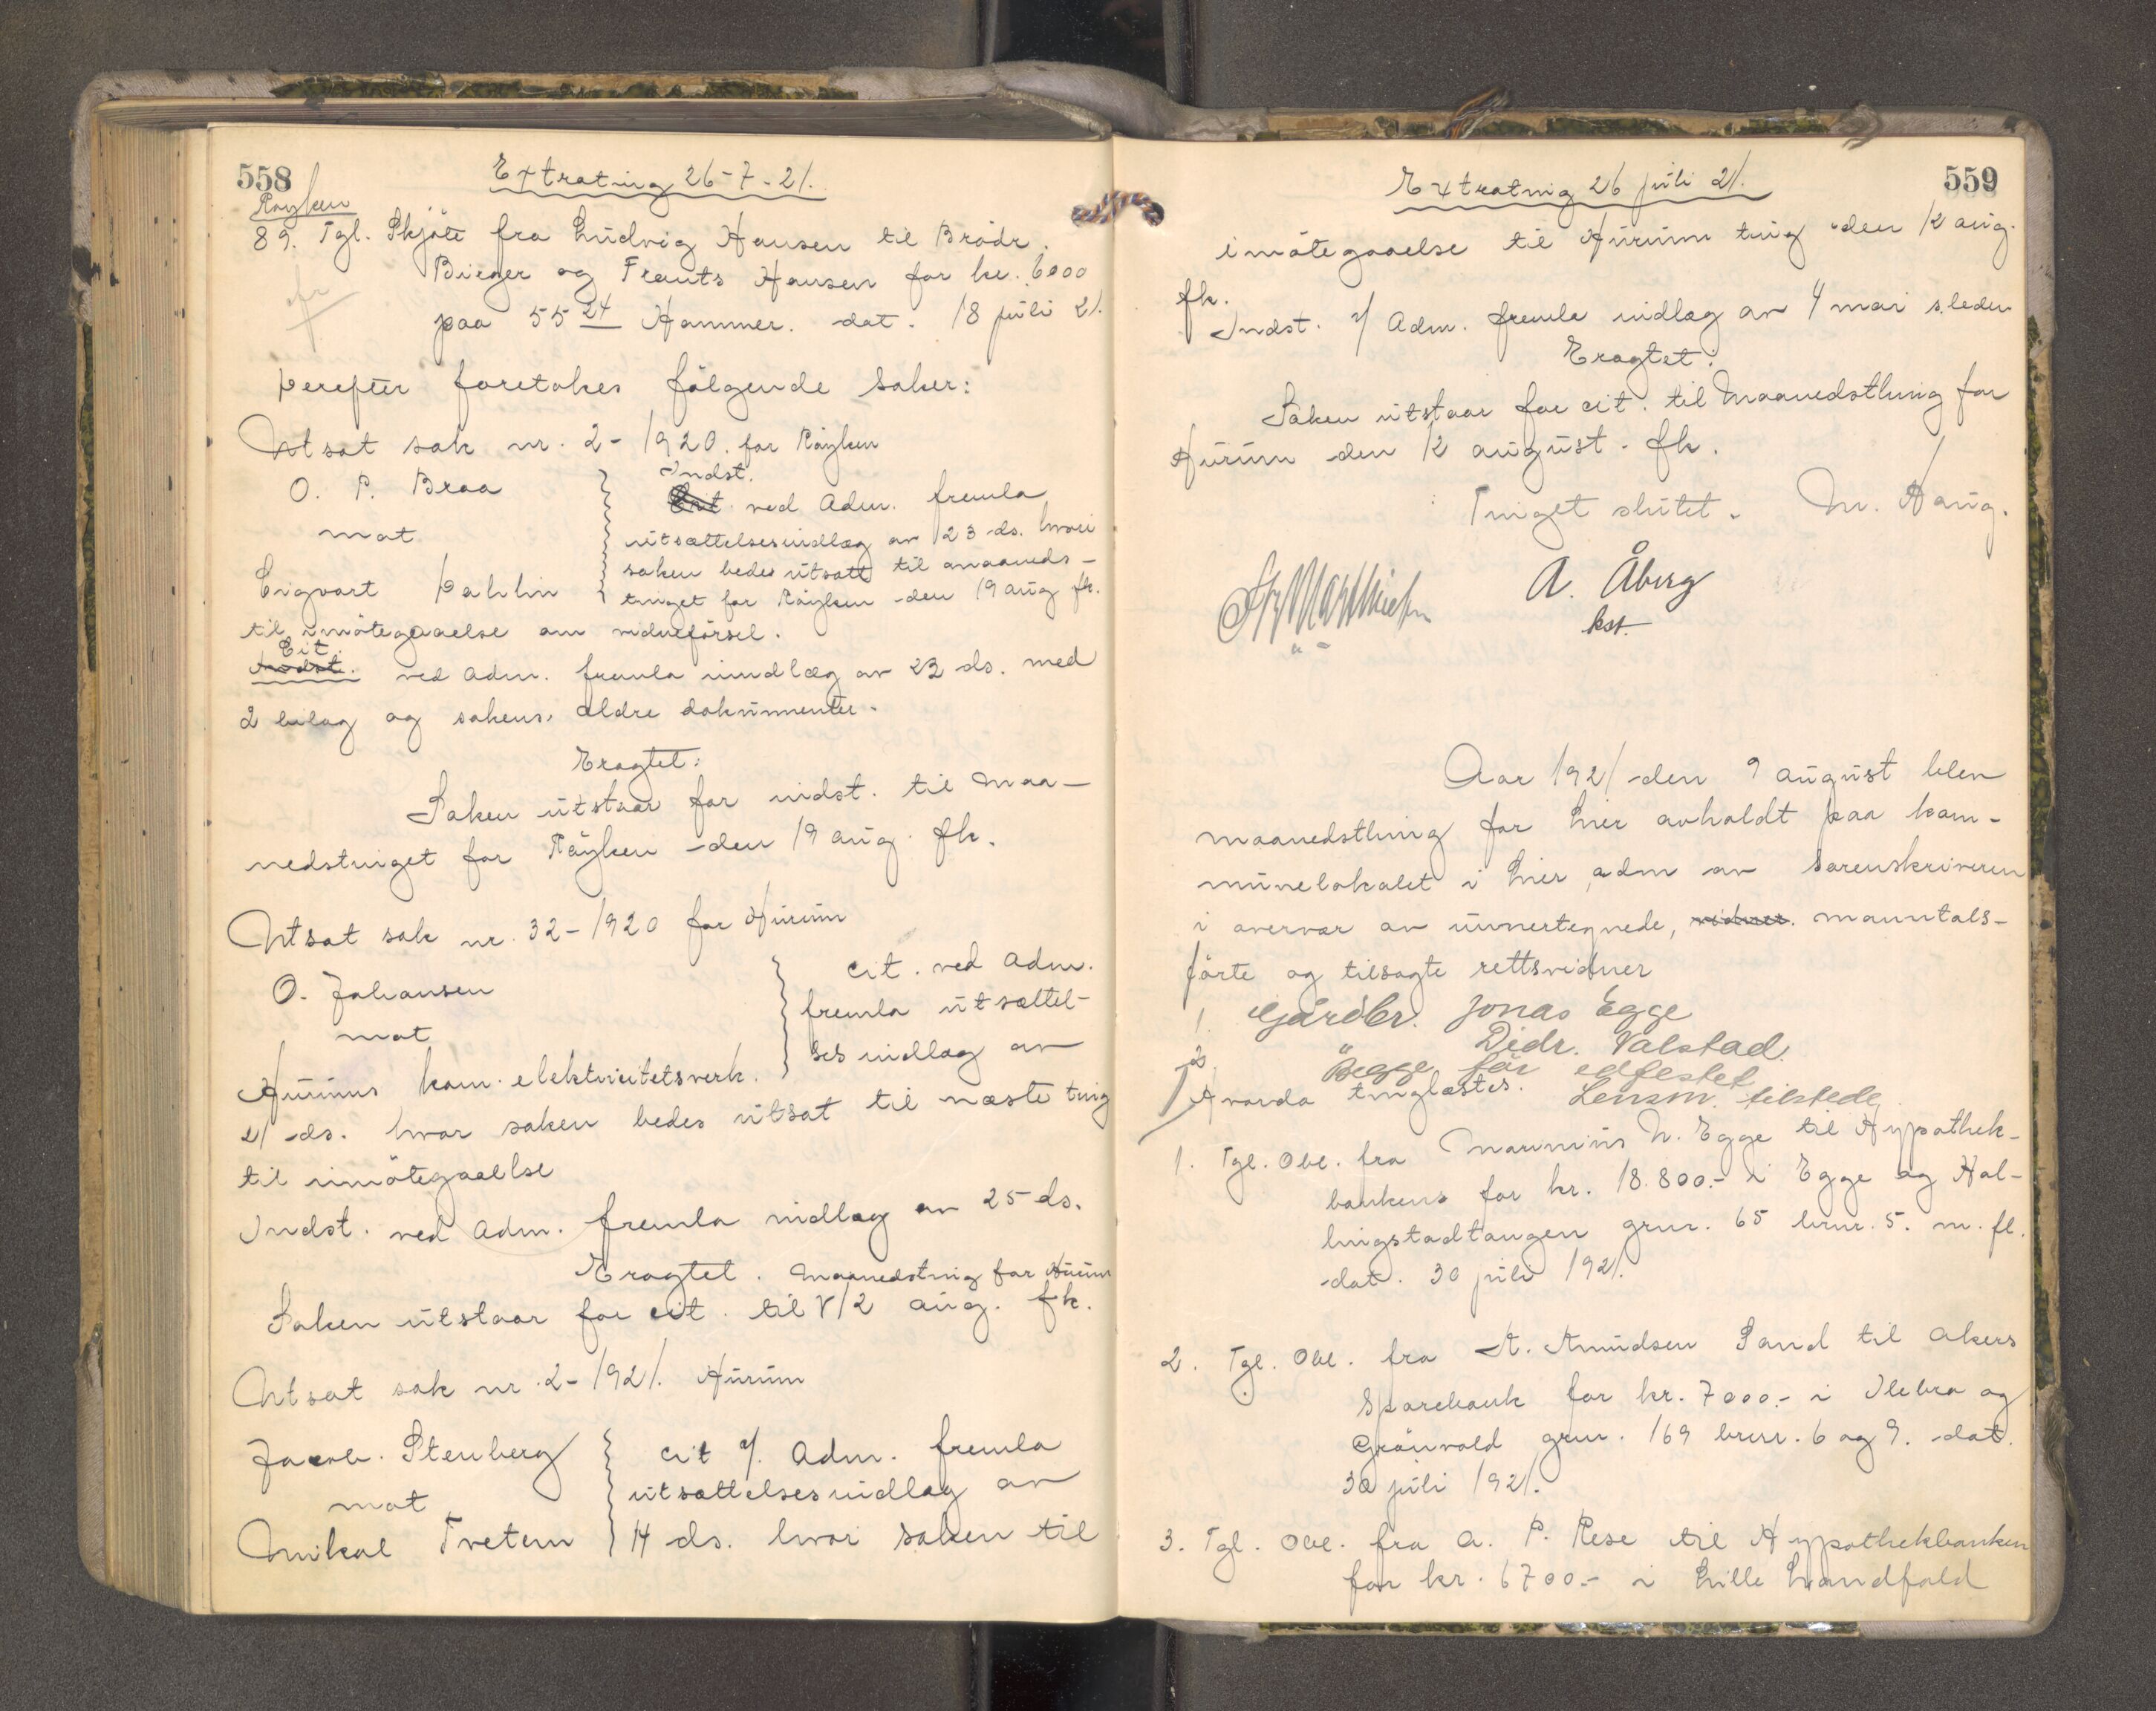 558
Extrating 26-7-21.
Røyken
89. Tgl. Skjöte fra Ludvig Hansen til Brödr.
Birger og Frants Hansen for kr. 6000
paa 55 24 Hammer. dat. 18 juli 21.
Derefter foretokes fölgende saker:
Utsat sak nr. 2-1920. for Röyken
O. P. Braa
mot
Sigvart Dahlin
Indst.
Cit. ved Adm. fremla
utsættelsesindlæg av 23 ds. hvori
saken bedes utsatt til maaneds-
tinget for Röyken den 19 aug fk.
til imötegaaelse om vidneförsel.
Cit.
Indst. ved Adm. fremla inndlæg av 23 ds. med
2 bilag og sakens ældre dokumenter.
Eragtet:
Saken utstaar for indst. til Maa-
nedstinget for Röyken den 19 aug. fk.
Utsat sak nr. 32-1920 for Hurum
O. Johansen
mot
Hurums kom. elektricitetsverk.
cit. ved Adm.
fremla utsættel-
ses indlæg av
21 ds. hvor saken bedes utsat til næste ting
til imötegaaelse
Indst. ved Adm. fremla indlæg av 25 ds.
Eragtet. Maanedsting for Hurum
Saken utstaar for cit. til V 12 aug. fk.
Utsat sak nr. 2-1921. Hurum
Jacob Stenberg
mot
Mikal Tveten
cit v/ Adm. fremla
utsættelsesindlæg av
14 ds. hvori saken til
559
Extrating 26 juli 21.
imötegaaelse til Hurum ting den 12 aug.
fk.
Indst. v/ Adm. fremla indlæg av 4 mai s.leden
Eragtet:
Saken utstaar for cit. til Maanedsthing for
Hurum den 12 august. fk.
Tinget slutet. M. Haug.
A. Åberg
kst.
Aar 1921 den 9 august blev
maanedsthing for Lier avholdt paa kom-
munelokalet i Lier, adm av sorenskriveren
i overvær av unnertegnede, vidner. manntals-
förte og tilsagte rettsvidner
1. Gårdbr. Jonas Egge
2. " Didr. Valstad.
Begge för edfestet
Lensm. tilstede
Hvorda tinglæstes.
1. Tgl. Obl. fra Marinius N. Egge til Hypothek-
bankens for kr. 18.800.- i Egge og Hal-
lingstadtangen grnr. 65 brnr. 5. m. fl.
dat. 30 juli 1921.
2. Tgl. Obl. fra A. Amundsen Sand til Akers
Sparebank for kr. 7000.- i Ilebra og
Grönvold grnr. 169 brnr. 6 og 9. dat.
30 juli 1921.
3. Tgl. Obl. fra A. P. Rese til Hypothekbanken
for kr. 6700.- i Lille Landfald